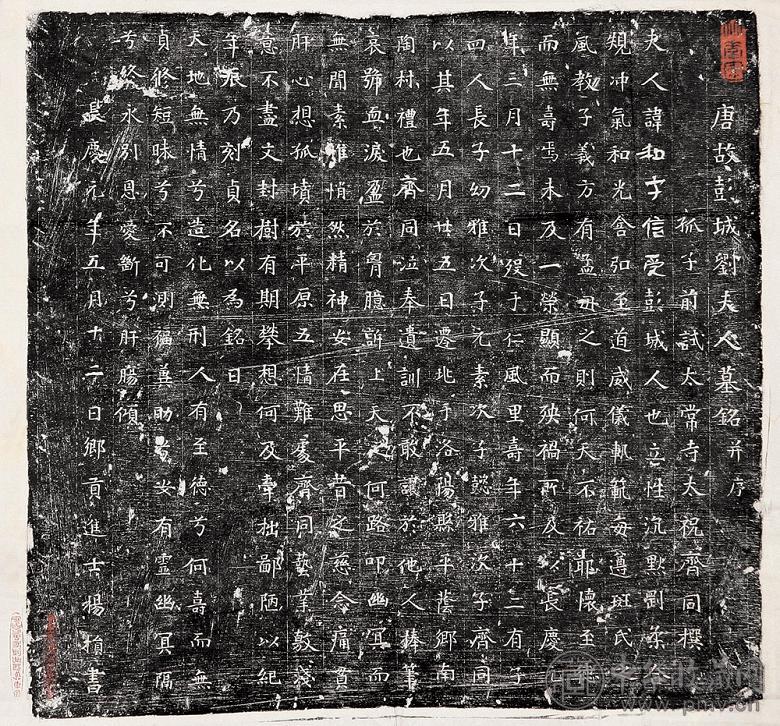 唐故彭城劉夫人墓銘并序
孤子前試太常寺太祝齊同撰
夫人諱和字信受彭城人也立性沉默劉柔合
規冲氣和光含弘至道威儀軌範每遵班氏
風教子義方有孟母之則何天不祐耶懷至
而無壽焉未及一榮顯而殃禍所及以長慶元
年三月十二日歿于仁風里壽年六十三有子
四人長子幼雅次子元素次子懿雅次子齊同
以其年五月廿五日遷兆于洛陽縣平蔭鄉南
陶村禮也齊同泣奉遺訓不敢讓於他人捧筆
哀號血淚盈於胷臆訴上天之何路叩幽冥而
無聞素帷悄然精神安在思平昔之慈念痛貫
肝心想孤墳於平原五情難處齊同藝業敩淺
意不盡文封樹有期攀想何及牽拙鄙陋以紀
年辰乃刻貞名以為銘曰
天地無情兮造化無刑人有至德兮何壽而無
貞修短昧兮不可測福善助兮安有靈幽冥隔
兮終永別恩愛斷兮肝腸傾
長慶元年五月十二日鄉貢進士楊損書